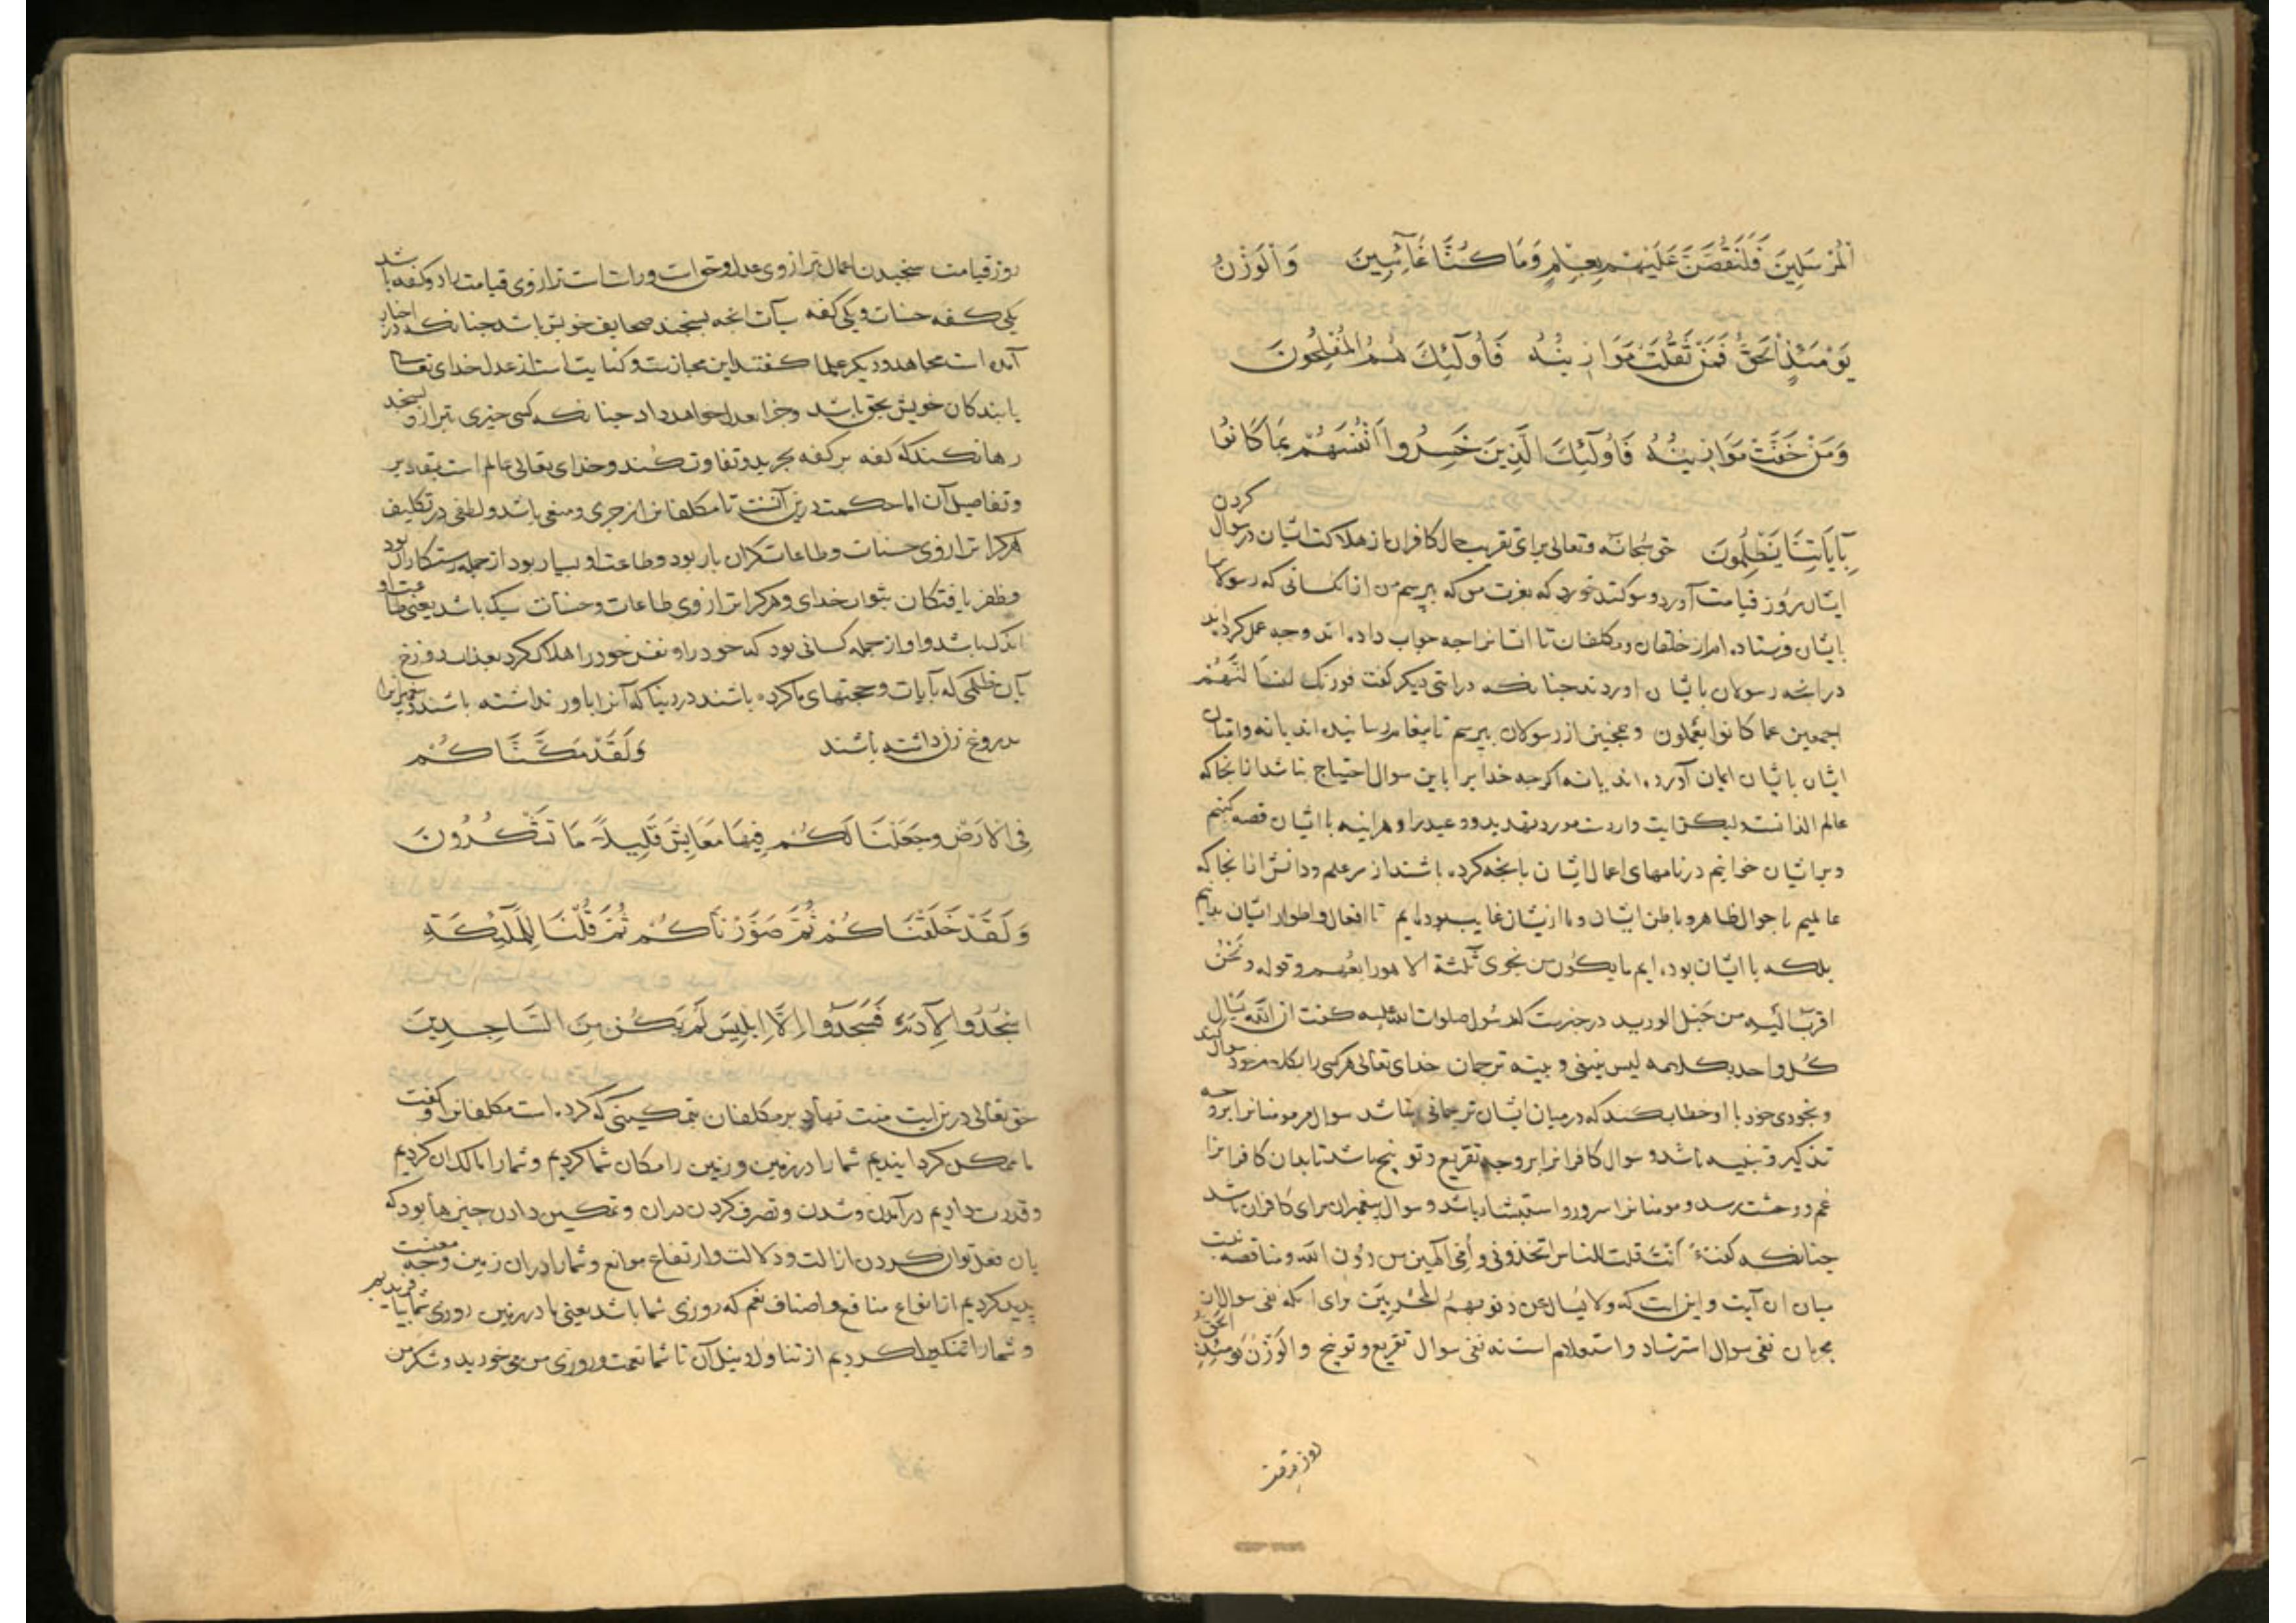 الْمُرْسَلِينَ فَلَنَقُصَّنَّ عَلَيْهِمْ بِعِلْمٍ وَمَا كُنَّا غَائِبِينَ وَالْوَزْنُ
يَوْمَئِذٍ الْحَقُّ فَمَنْ ثَقُلَتْ مَوَازِينُهُ فَأُولَئِكَ هُمُ الْمُفْلِحُونَ
وَمَنْ خَفَّتْ مَوَازِينُهُ فَأُولَئِكَ الَّذِينَ خَسِرُوا أَنْفُسَهُمْ بِمَا كَانُوا
بِآيَاتِنَا يَظْلِمُونَ حق سبحانه و تعالی برای تقریب حال کافران از هلاکت ایشان در سوال کردن
ایشان روز قیامت آورد و سوکند خورد که بعزت من که بپرسم من از انکسانی که رسولان
بایشان فرستاده ام از خلقان و مکلفان تا ایشانرا چه جواب داده اند و چه عمل کرده اند
در انچه رسولان بایشان اوردند جنانکه در ایتی دیکر کفت فوربک لنسألنهم
اجمعین عما کانوا یعملون و همجنین از رسولان بپرسم تا پیغام رسانیده اند یا نه و امتان
ایشان بایشان ایمان آورده اند یا نه اکرچه خدایرا باین سوال احتیاج نباشد از انجا که
عالم الذاتست لیکن ایت واردست مورد تهدید و وعید را و هراینه با ایشان قصه کنیم
و بر ایشان خوانیم در نامهای اعمال ایشان بانچه کرده باشند از سر علم و دانش از انجا که
عالمیم باحوال ظاهر و باطن ایشان و ما ازیشان غایب نبوده ایم تا افعال و اطوار ایشان ندانیم
بلکه با ایشان بوده ایم ما یکون من نجوی ثلثة الا هو رابعهم و قوله و نحن
اقرب الیه من حبل الورید در خبرست که رسول صلوات الله علیه کفت ان الله یسال
کل واحد بکلامه لیس بینی و بینه ترجمان خدای تعالی هر کسی را بکلام خود سوال کند
و بخودی خود با او خطاب کند که در میان ایشان ترجمانی نباشد سوال مر مومنانرا بر وجه
تذکیر و تنبیه باشد و سوال کافرانرا بر وجه تقریع و توبیخ باشد تا بدان کافرانرا
غم و وحشت رسد و مومنانرا سرور و استبشار باشد و سوال پیغمبران برای کافران باشد
جنانکه کفت ءانت قلت للناس اتخذونی و امی الهین من دون الله و مناقصه نیست
میان ان آیت و این ایت که ولا یسال عن ذنوبهم المجرمین برای انکه نفی سوال ان
مجرمان نفی سوال استرشاد و استعلام است نه نفی سوال تقریع و توبیخ والوزن یومئذ الحق
روز قیامت سنجیدن اعمال بترازوی عدل و حق است و راست است ترازوی قیامت را دو کفه باشد
یکی کفه حسنات و یکی کفه سیآت انچه بسنجند صحایف خویش باشد جنانکه در اخبار
آمده است مجاهد و دیکر علما کفتند این مجازست و کنایت است از عدل خدای تعالی
با بندکان خویش بحق باشد و جزا بعدل خواهد داد جنانکه کسی چیزی بترازو بسنجد
رها نکند که کفه بر کفه بچربد و تفاوت کند و خدای تعالی عالم است بمقادیر
و تفاصیل آن اما حکمت درین آنست تا مکلفانرا زجری و منعی باشد و لطفی در تکلیف
هر کرا ترازوی حسنات و طاعات کران بار بود و طاعت او بسیار بود از جمله رستکاران بود
و ظفر یافتکان بثواب خدای و هر کرا ترازوی طاعات و حسنات سبک باشد یعنی طاعت او
اندک باشد او از جمله کسانی بود که خود را و نفس خود را هلاک کرد بعذاب دوزخ
بآن ظلمی که بآیات و حجتهای ما کرده باشند در دنیا که آنرا باور نداشته باشند و پیغمبرانرا
بدروغ زن داشته باشند وَلَقَدْ مَكَّنَّاكُمْ
فِي الْأَرْضِ وَجَعَلْنَا لَكُمْ فِيهَا مَعَايِشَ قَلِيلاً مَا تَشْكُرُونَ
وَلَقَدْ خَلَقْنَاكُمْ ثُمَّ صَوَّرْنَاكُمْ ثُمَّ قُلْنَا لِلْمَلَئِكَةِ
اسْجُدُوا لِآدَمَ فَسَجَدُوا إِلَّا إِبْلِيسَ لَمْ يَكُنْ مِنَ السَّاجِدِينَ
حق تعالی درین ایت منت نهاد بر مکلفان بتمکینی که کرده است مکلفانرا و کفت
ما ممکن کردانیدیم شما را در زمین و زمین را مکان شما کردیم و شما را مالک ان کردیم
و قدرت دادیم در آمدن و شدن و تصرف کردن دران و تمکین دادن چیزها بود که
بان فعل توان کردن از الت و دلالت و ارتفاع موانع و شما را دران زمین وجه معیشت
پدید کردیم از انواع منافع و اصناف نعم که روزی شما باشد یعنی ما در زمین روزی شما بیافریدیم
و شما را متمکن کردیم از تناول و نیل آن تا شما نعمت و روزی من می خورید و شکر من